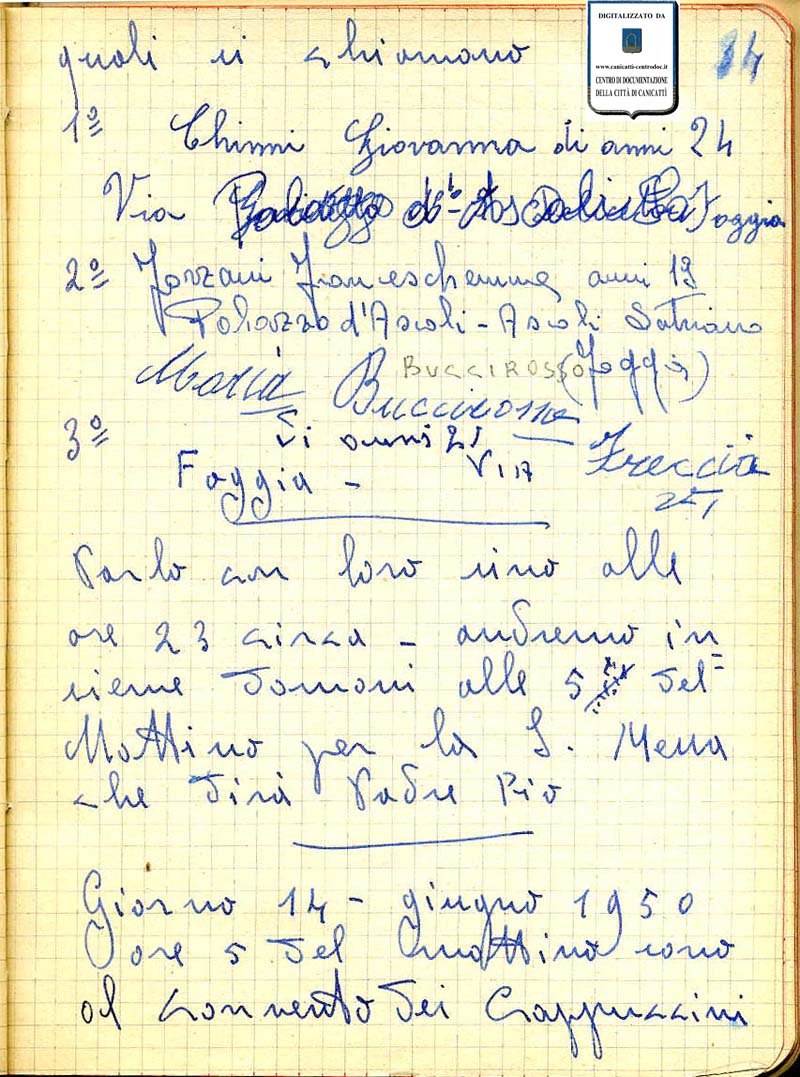 DIGITALIZZATO DA
www.canicatti-centrodoc.it
CENTRO DI DOCUMENTAZIONE
DELLA CITTÀ DI CANICATTÌ
34
quali si chiamano
1º Chinni Giovanna di anni 24
Via Foggia
2º anni 19
Palazzo d'Ascoli - Ascoli Satriano
(Foggia)
BUCCIROSSO
Maria Buccirosso
3º di anni 21
Foggia - VIA Freccia
251
Parlo con loro sino alle
ore 23 circa - andremo in
sieme domani alle 5 del
Mattino per la S. Messa
che dirà Padre Pio
Giorno 14 - giugno 1950
ore 5 del mattino sono
al convento dei Cappuccini